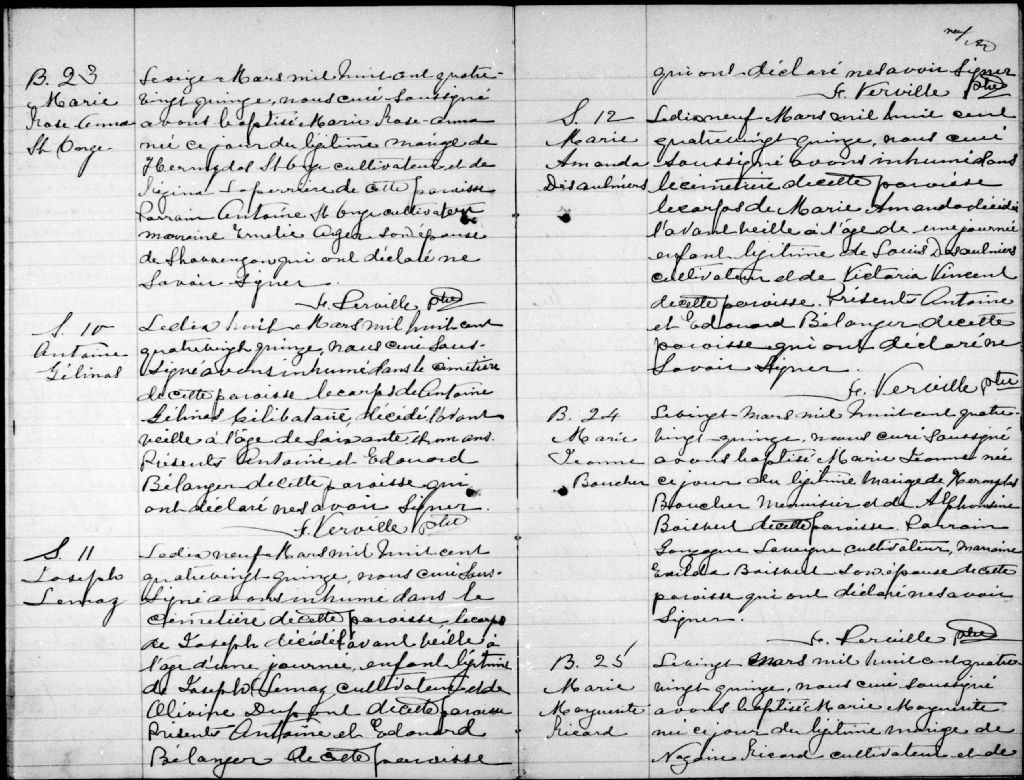 B. 23
Marie
Rose Anna
St Onge
Le seize Mars mil huit cent quatre-
vingt quinze, nous curé soussigné
avons baptisé Marie Rose-anna
née ce jour du légitime mariage de
Hermégilde St Onge cultivateur et de
Régina Laperrière de cette paroisse
Parrain Antoine St Onge cultivateur
marraine Emelie Auger son épouse
de Shawenegan qui ont déclaré ne
savoir signer.
F. Verville ptre
S. 10
Antoine
Gélinas
Le dix huit Mars mil huit cent
quatrevingt quinze, nous curé sous-
signé avons inhumé dans le cimetière
de cette paroisse le corps de Antoine
Gélinas Célibataire, décédé l'avant
veille à l'âge de soixante et un ans.
Présents Antoine et Edouard
Bélanger de cette paroisse qui
ont déclaré ne savoir signer.
F. Verville ptre
S. 11
Joseph
Lemay
Le dix neuf Mars mil huit cent
quatrevingt quinze, nous curé sous-
signé avons inhumé dans le
cimetière de cette paroisse, le corps
de Joseph décédé l'avant veille à
l'âge d'une journée, enfant légitime
de Joseph Lemay cultivateur et de
Olivine Dupont de cette paroisse
Présents Antoine et Edouard
Bélanger de cette paroisse
neuf
qui ont déclaré ne savoir signer
F. Verville ptre
S. 12
Marie
Amanda
Desaulniers
Le dix neuf Mars mil huit cent
quatrevingt quinze, nous curé
soussigné avons inhumé dans
le cimetière de cette paroisse
le corps de Marie Amanda décédée
l'avant veille à l'âge de une journée
enfant légitime de Louis Desaulniers
cultivateur et de Victoria Vincent
de cette paroisse. Présents Antoine
et Edouard Bélanger de cette
paroisse qui ont déclaré ne
savoir signer.
F. Verville ptre
B. 24
Marie
Jeanne
Boucher
Le vingt mars mil huit cent quatre-
vingt quinze, nous curé soussigné
avons baptisé Marie Jeanne née
ce jour du légitime mariage de
Boucher Menuisier et de Alphonsine
Boisvert de cette paroisse. Parrain
Gonzague Lavergne cultivateur, marraine
Exilda Boisvert son épouse de cette
paroisse qui ont déclaré ne savoir
signer.
F. Verville ptre
B. 25
Marie
Marguerite
Ricard
Le vingt mars mil huit cent quatre
vingt quinze, nous curé soussigné
avons baptisé Marie Marguerite
née ce jour du légitime mariage de
Nazaire Ricard cultivateur et de